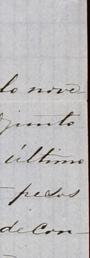 lo nove
junto
último
pesos
de con-